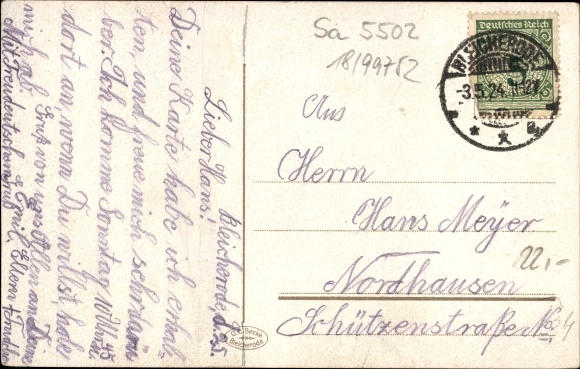 Sa 5502
18/99752
Deutsches Reich
5
BLEICHERODE
-3.5.24. 11-12V
* * * a
Aus
Herrn
Hans Meyer
Nordhausen
Schützenstraße No 24
22,-
Bleicherode d. 2.5.
Lieber Hans!
Deine Karte habe ich erhal-
ten, und freue mich sehr darü-
ber. Ich komme Sonntag 10 Uhr 45
dort an wenn Du willst, hole
mich ab.
Gruß von uns Allen an Deine
Mit Treudeutschem Gruß
Emil, Eltern u.
C. Becke
Bleicherode